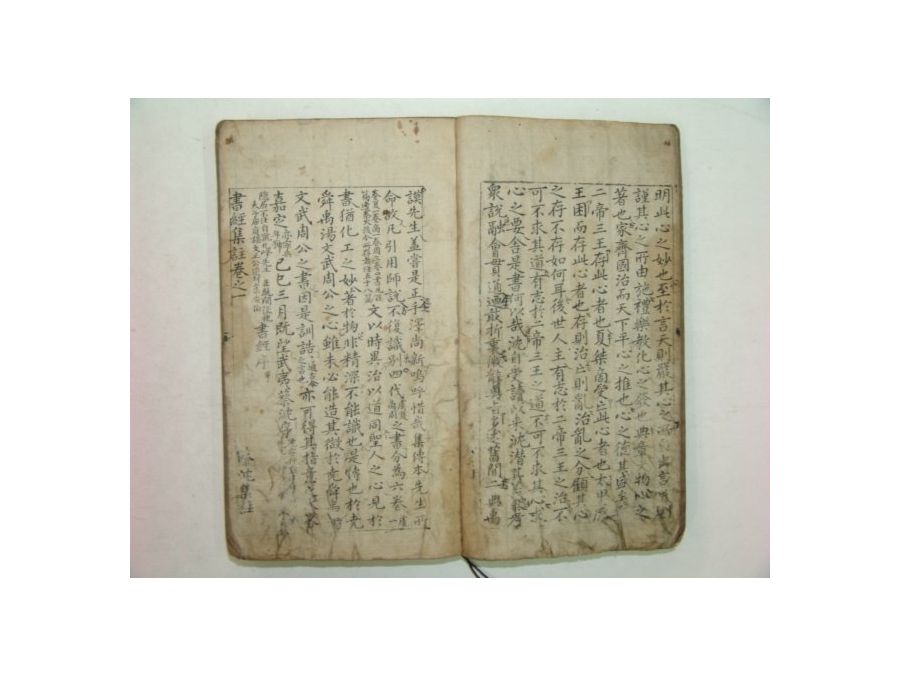 明此心之妙也至於言天則嚴其心之
謹其心之所由施禮樂敎化心之發也典章物心之
著也家齊國治而天下平心之推也心之德其盛
二帝三王存此心者也夏桀商受亡此心者也太甲成
王困而存此心者也存則治亡則亂治亂之分顧其心
之存不存如何耳後世人主有志於二帝三王之治不
可不求其道有志於二帝三王之道不可不求其心求
心之要舍是書何以哉沈自受讀以来沈潜其
衆說融會貫通迺敢折衷微辭奧旨多述舊聞二典禹
謨先生蓋嘗是正手澤尚新嗚呼惜哉集傳本先生所
命故凡引用師說不復識別四代之書分為六卷
文以時異治以道同聖人之心見於
書猶化工之妙著於物非精深不能識也是傳也於尭
舜禹湯文武周公之心雖未必能造其微於尭舜禹
文武周公之書因是訓詁亦可得其指意
嘉定己巳三月既望武夷蔡沈序
書經序
書經集註卷之一
蔡沈集註